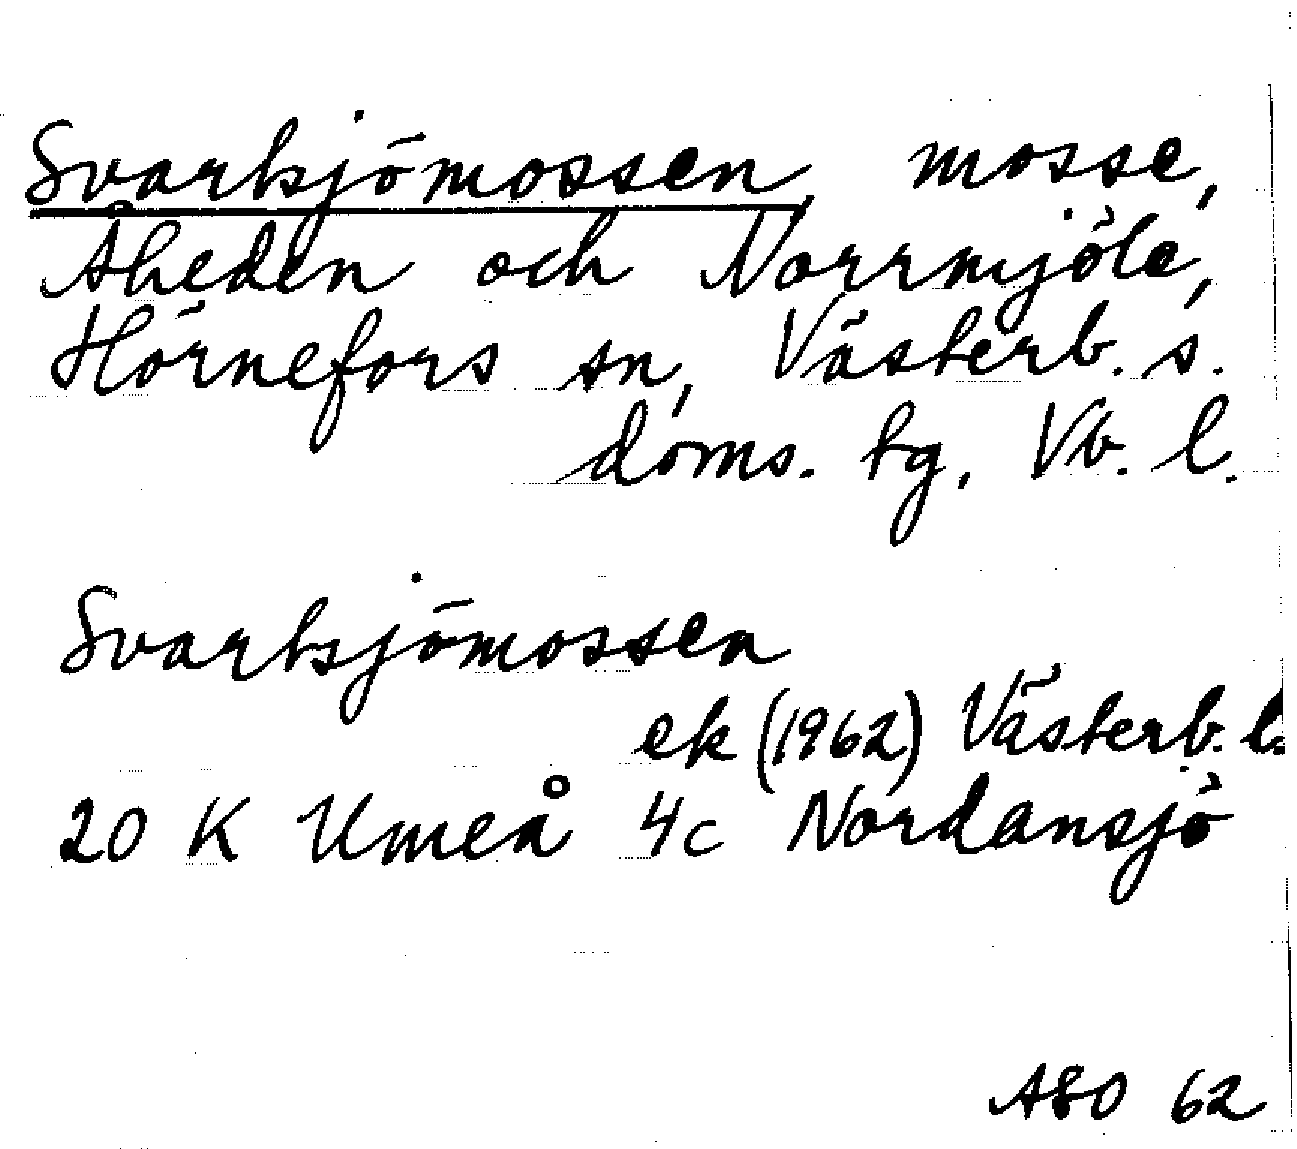 Svartsjömossen, mosse,
Åheden och Norrmjöle,
Hörnefors sn, Västerb. s.
doms. tg, Vb. l.
Svartsjömossen
ek (1962) Västerb. l.
20 K Umeå 4c Nordansjö
ASO 62